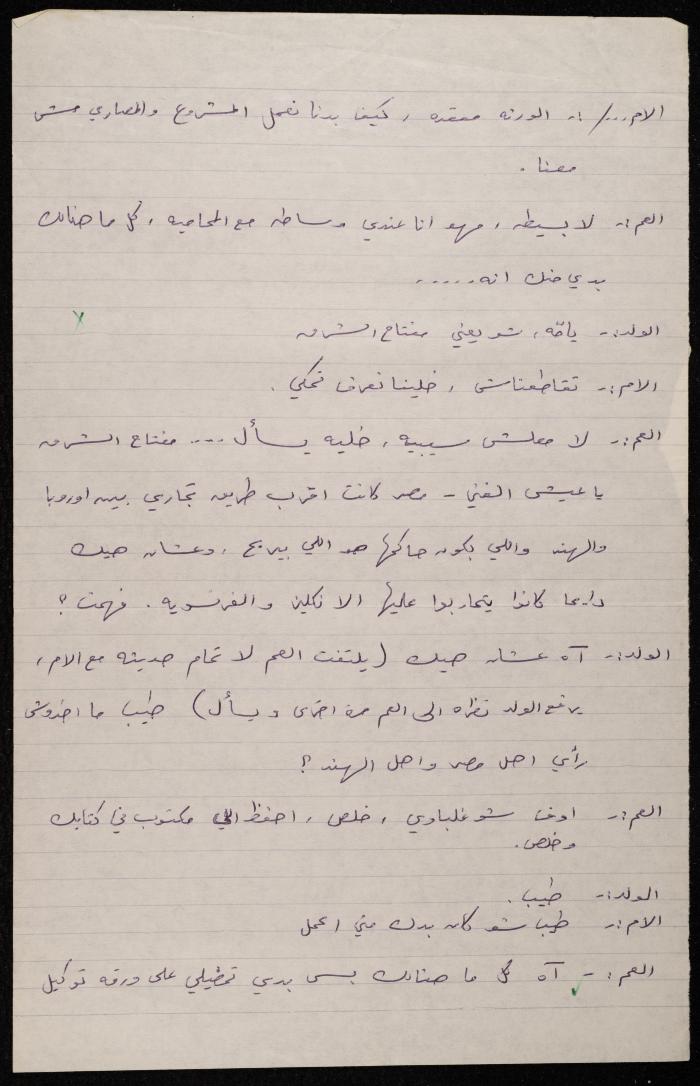 الام.../:- الورثه معقده ، كيف بدنا نعمل المشروع والمصاري مش
معنا .
العم:- لا بسيطه ، مهو انا عندي وساطه مع المحاميه ، كل ما هنالك
بدي منك انه .....
الولد:- يامّه ، شو يعني مفتاح الشرق
الام:- تقاطعناش ، خلينا نعرف نحكي .
العم:- لا معلش سيبيه ، خليه يسأل ... مفتاح الشرق
يا عيش الغني - مصر كانت اقرب طريق تجاري بين اوروبا
والهند واللي بكون حاكمها هو اللي بيربح ، وعشان هيك
دايما كانوا يتحاربوا عليها الانكليز والفرنسويه . فهمت ؟
الولد:- آه عشان هيك (يلتفت العم لاتمام حديثه مع الام ،
يرفع الولد نظراه الى العم مرة اخرى ويسأل) طيب ما اخذوش
رأي اهل مصر واهل الهند ؟
العم:- اوف شو غلباوي ، خلص ، احفظ اللي مكتوب في كتابك
وخلص .
الولد:- طيب .
الام:- طيب شو كان بدك مني اعمل
العم:- آه كل ما هنالك بس بدي تمضيلي على ورقة توكيل